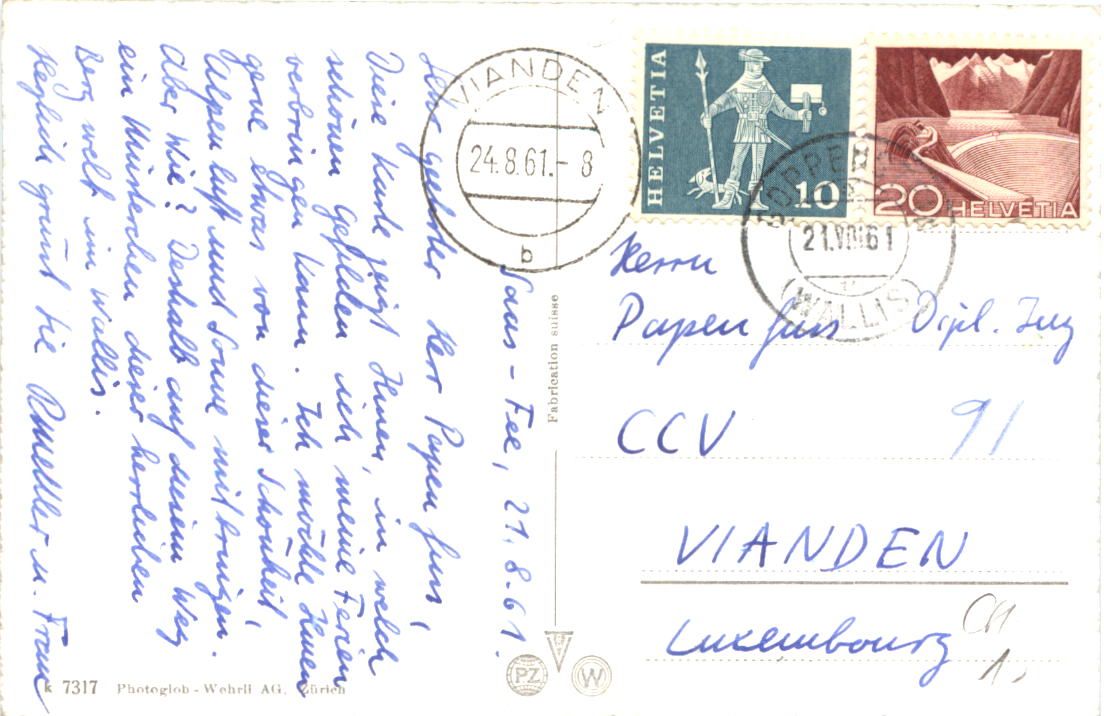 Saas-Fee, 21.8.61.
Sehr geehrter Herr Papenfuss,
Diese Karte zeigt Ihnen, in welch
schönen Gefilden ich meine Ferien
verbringen kann. Ich möchte Ihnen
gerne etwas von dieser Schönheit,
Alpenluft und Sonne mitbringen.
Aber wie? Deshalb auf diesem Weg
ein Müsterchen dieser herrlichen
Bergwelt im Wallis.
Herzlich grüsst Sie u. Frau
k 7317 Photoglob-Wehrli AG, Zürich
Fabrication suisse
PZ
W
VIANDEN
24.8.61.-8
b
HELVETIA
10
20 HELVETIA
21.VIII 61
(WALLIS)
Herrn
Papenfuss Dipl. Ing
CCV 91
VIANDEN
Luxembourg
CH
1.